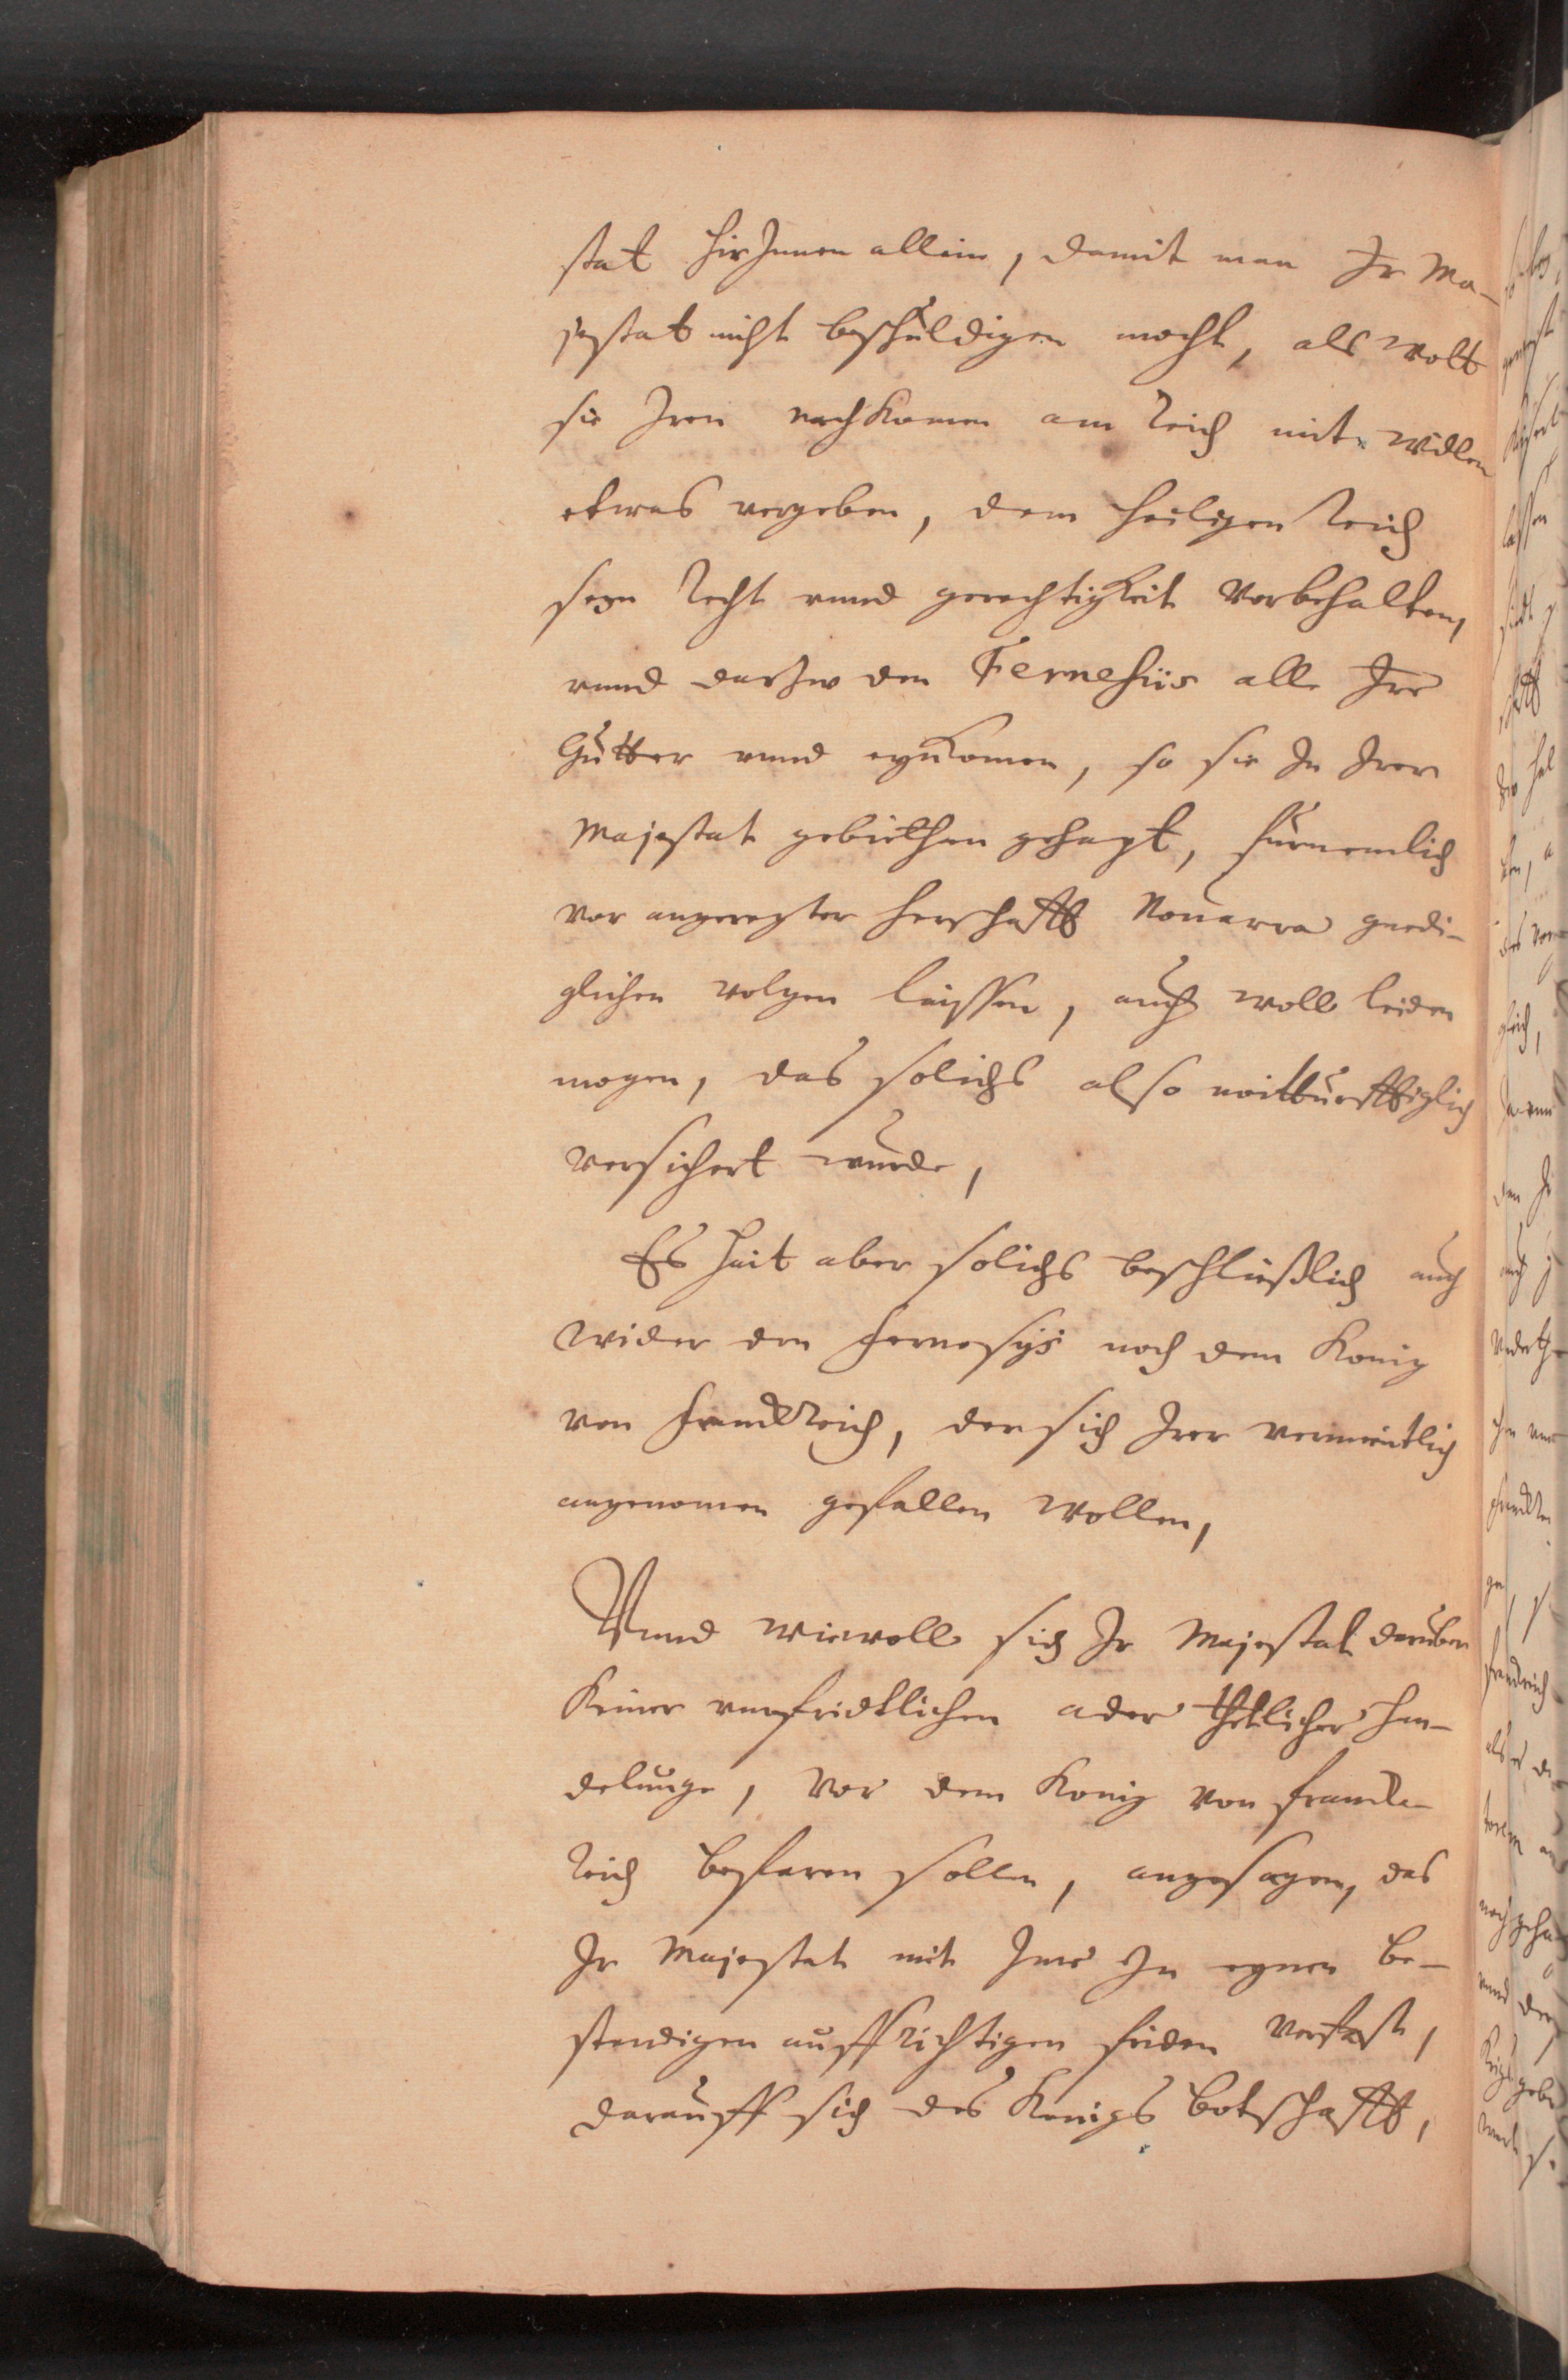 stat hirJnnen allein, damit man Jr Ma-
jestat nicht beschuldigen mocht, als wolt
sie Jren nachkomen am Reich mit willen
etwas vergeben, dem heiligen Reich
seyn Recht vnnd gerechtigkeit vorbehalten,
vnnd darzw den Fernesiis alle Jre
Gutter vnnd eynkomen, so sie Jn Jrer
Majestat gebiethen gehapt, furnemlich
vor angeregter herschafft Nouarra gnedi-
glichen volgen laissen, auch woll leiden
mogen, das solichs also noitturfftiglich
versichert wurde,
Es hait aber solichs beschließlich auch
wider den Fernesijs noch dem Konig
von Franckreich, der sich Jrer vermeintlich
angenomen gefallen wollen,
Vnnd wiewoll sich Jr Majestat daruber
keiner vnnfridtlichen ader thetlicher han-
delunge, vor dem Konig von Franck-
reich befaren sollen, angesehen, das
Jr Majestat mit Jme Jn eynen be-
stendigen auffrichtigen friden verfast,
darauff sich des Konigs botschafft,